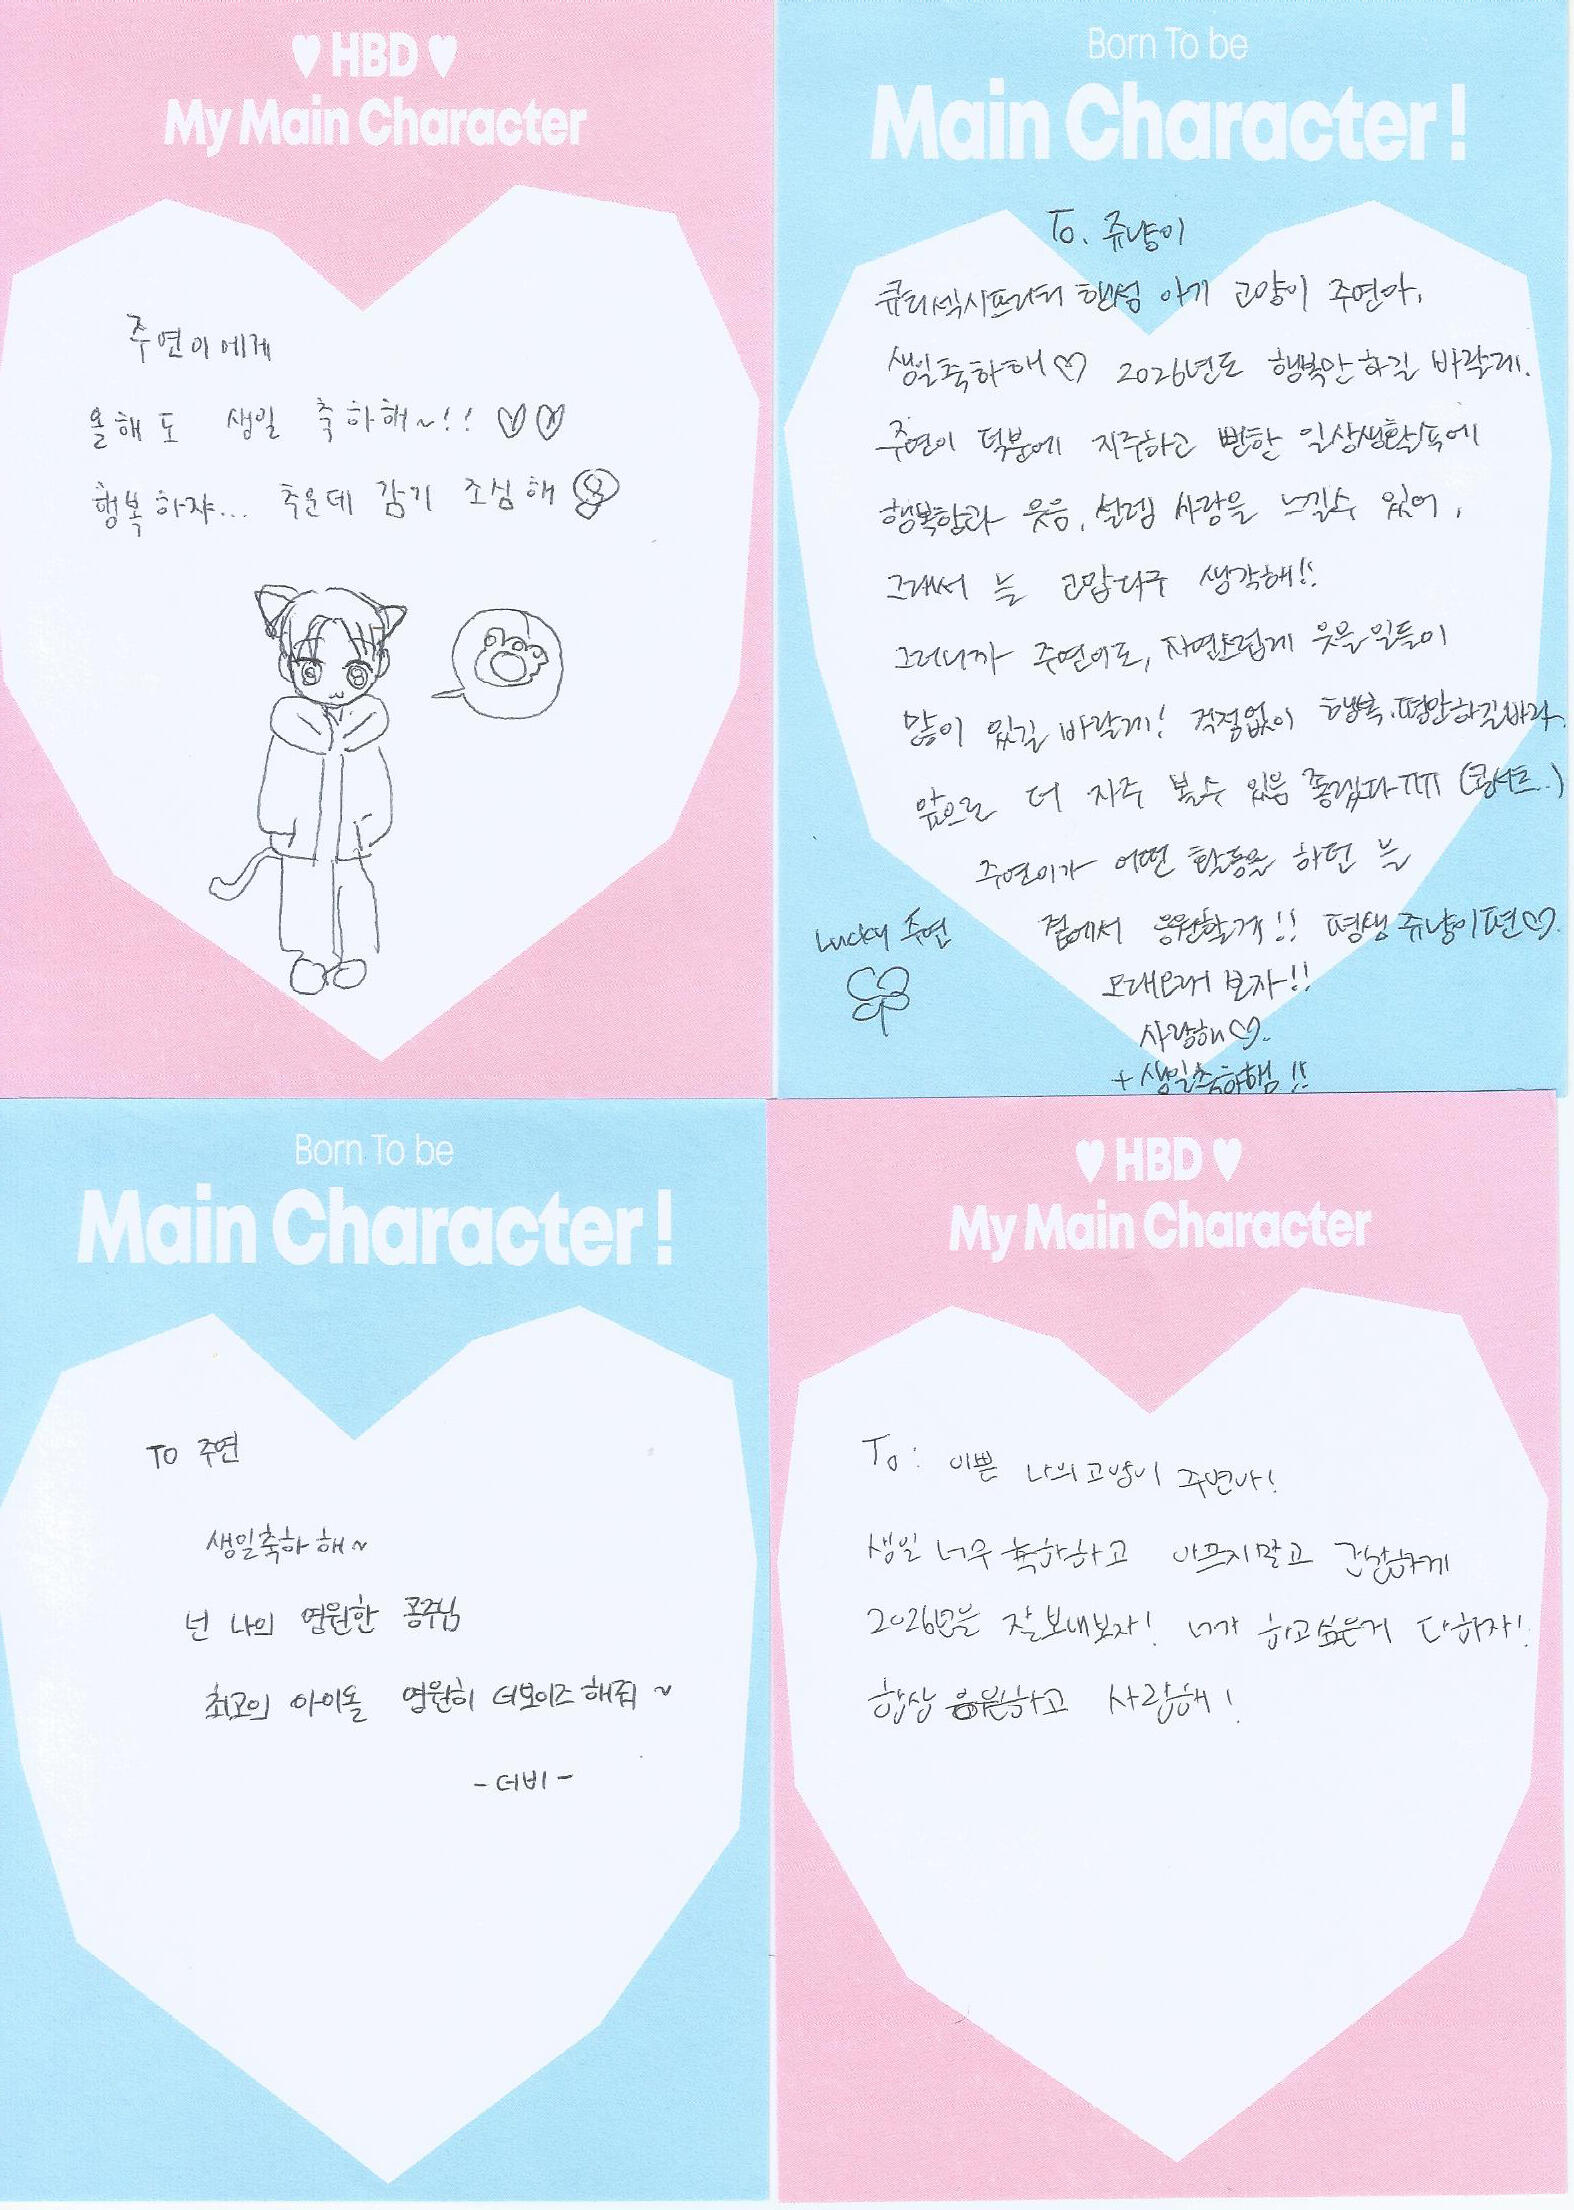 ♥ HBD ♥
My Main Character
주연이에게
올해도 생일 축하해~!! ♡♡
행복하쟈... 추운데 감기 조심해
Born To be
Main Character!
To.쥬냥이
큐티섹시프리티 핸섬 아기 고양이 주연아,
생일축하해♡ 2026년도 행복만하길 바랄게.
주연이 덕분에 지루하고 뻔한 일상생활속에
행복함과 웃음, 설렘 사랑을 느낄수 있어,
그래서 늘 고맙다구 생각해!!
그러니까 주연이도, 자연스럽게 웃을 일들이
많이 있길 바랄게! 걱정없이 행복, 평안하길바라.
앞으로 더 자주 볼수 있음 좋겠다ㅠㅠ (콘서트..)
주연이가 어떤 활동을 하던 늘
곁에서 응원할게!! 평생 쥬냥이편♡.
Lucky 주연
오래오래 보자!!
사랑해♡.
+ 생일축하햄!!
Born To be
Main Character!
To 주연
생일축하해~
넌 나의 영원한 공주님
최고의 아이돌 영원히 더보이즈 해줘~
-더비-
♥ HBD ♥
My Main Character
To: 이쁜 나의고양이 주연아!
생일 너무 축하하고 아프지말고 건강하게
2026년을 잘보내보자! 너가 하고싶은거 다하자!
항상 응원하고 사랑해!